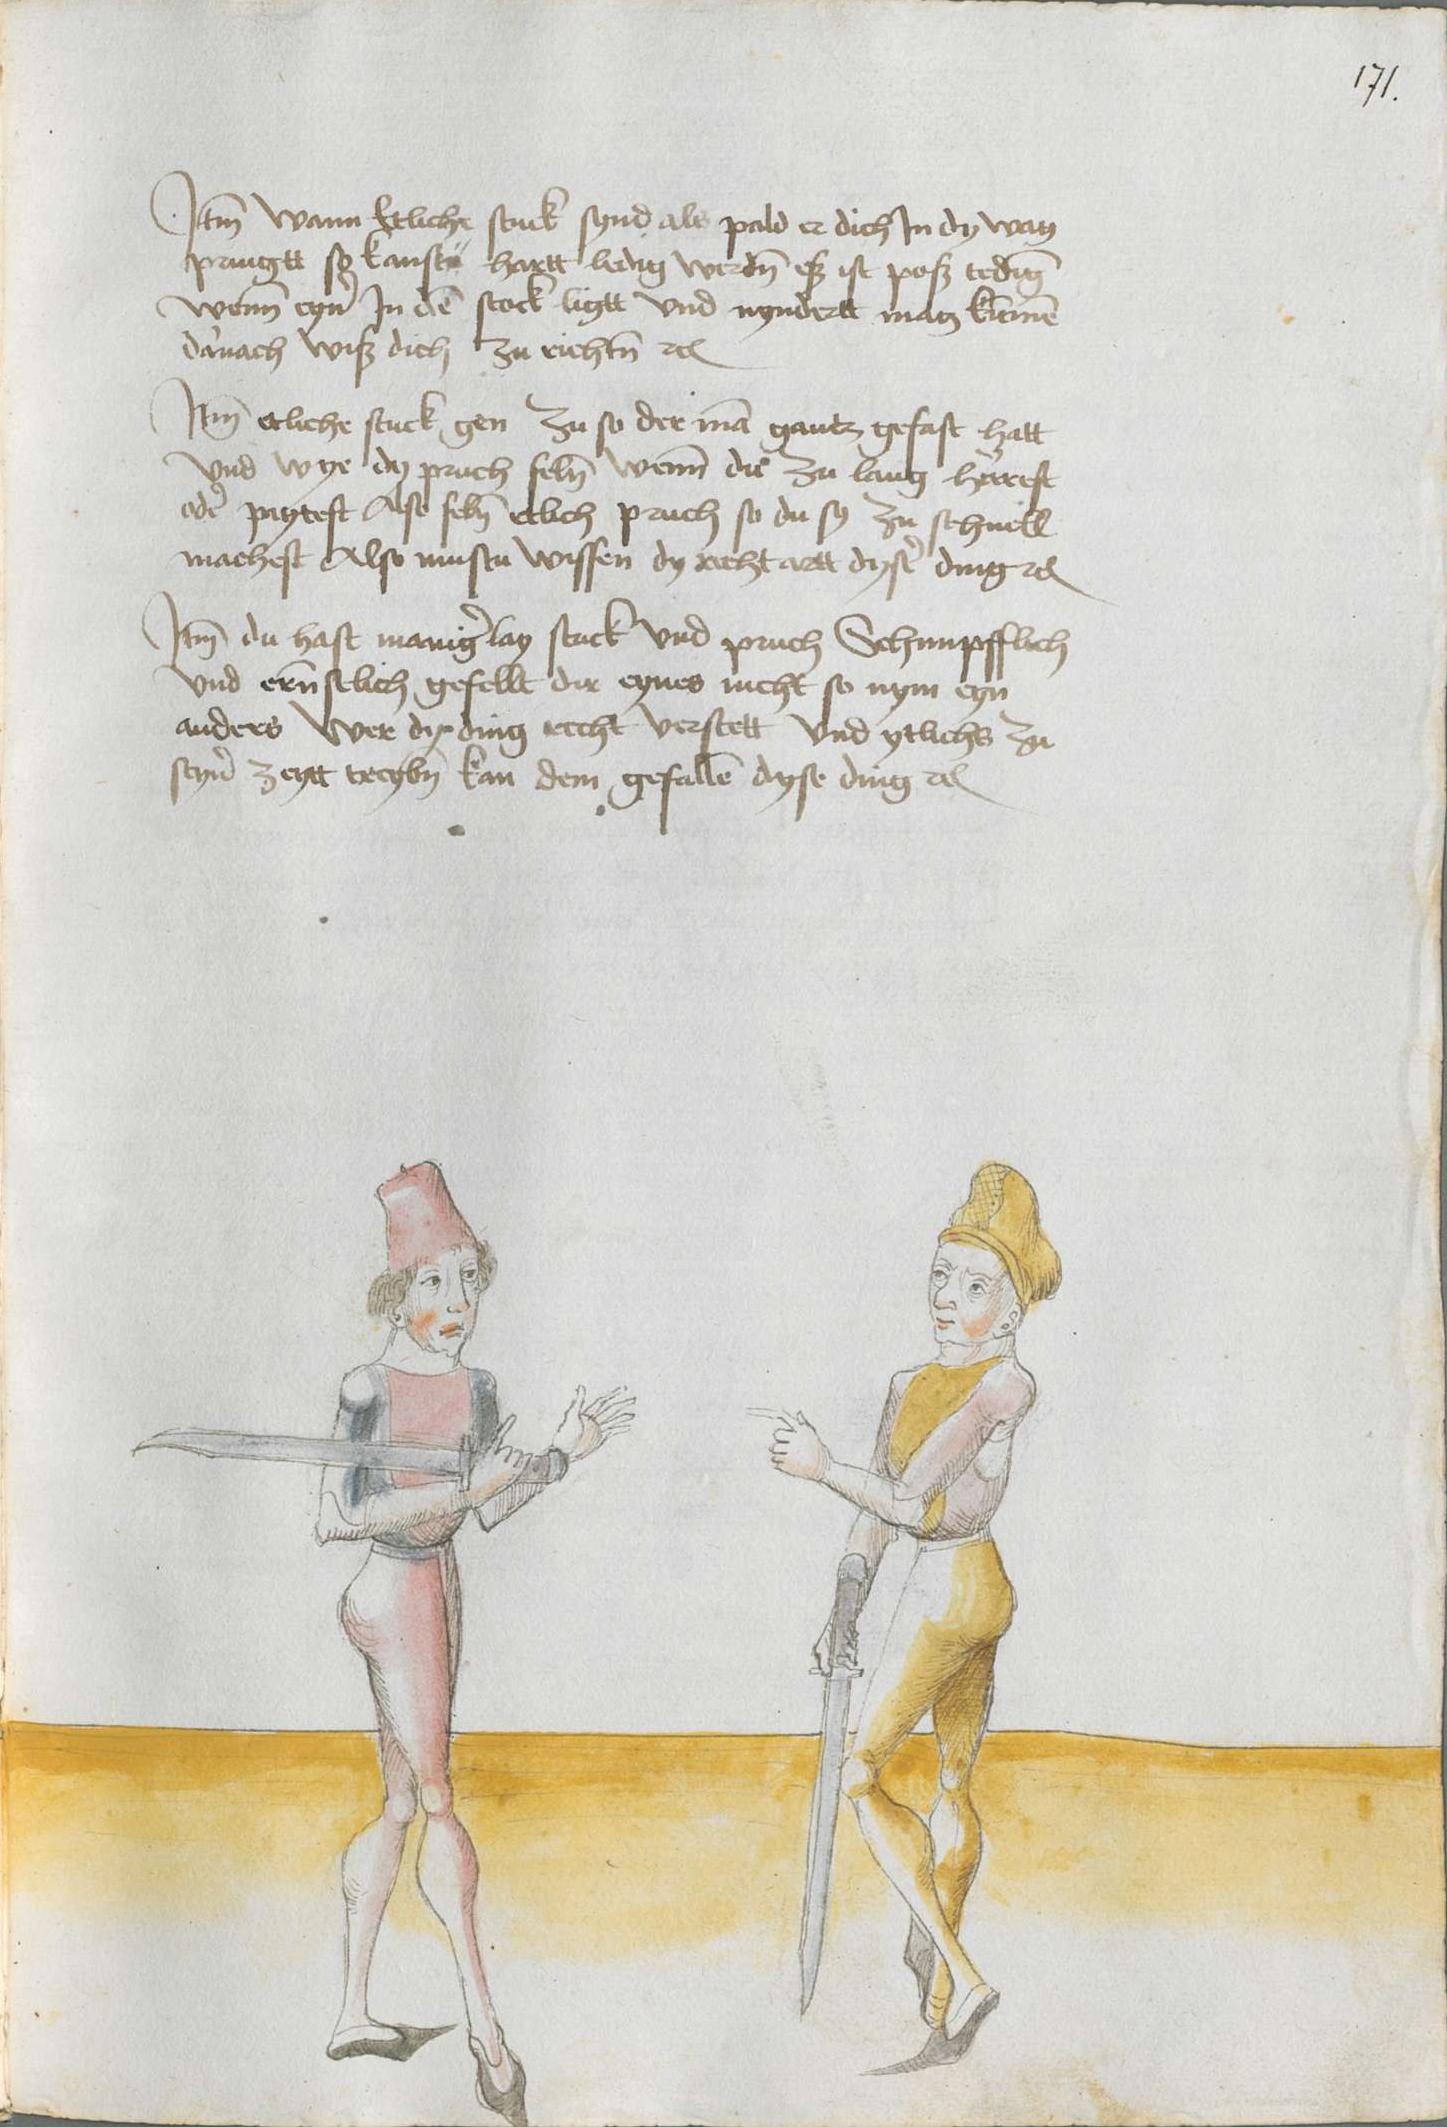 171.
Itm̄ wann Etliche stuck synd als pald er dich In dy wag
pringtt so kanstu hartt ledig werdn̄ eß ist poß tedīg
wenn̄ eyn̄ In dē stock ligtt vnd nyndertt mag kūmē
dǎnach wiß dich zu richtn̄ ⁊c̄
Itm̄ etliche stuck gen zu so der mā gantz gefast hatt
vnd wye dy pruch feln̄ wenn̄ du zu lang harest
oder̄ peytest Also feln̄ etlich pruch so du sy zu schnell
machest Also mustu wissen dy recht artt dyser̄ ding ⁊c̄
Itm̄ du hast manig̾lay stuck vnd pruch Schimpfflich
vnd ern̄stlich gefellt dir eynes nicht so nym eyn
anders wer dy ding recht verstett vnd ytlichs zu
seyn̾ zeytt treybn̄ kan dem gefallē dyse ding ⁊c̄